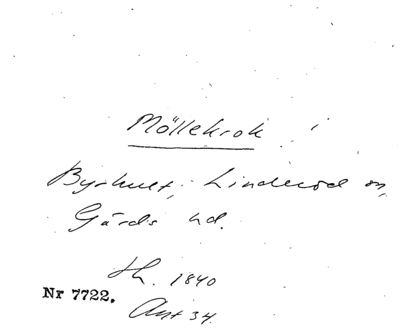 Möllekrok i
Byrhult, Linderöd sn,
Gärds hd.
Sk. 1840
Nr 7722.
Avs 34